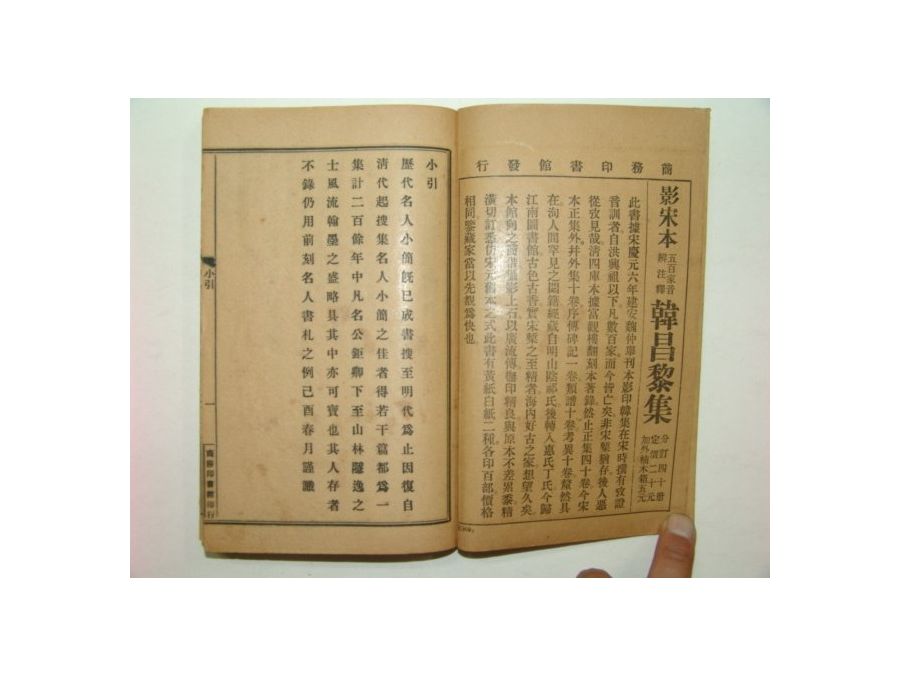 商務印書館發行
影宋本
五百家音
解注釋
韓昌黎集
分訂四十册
定價二十元
加外楠木箱五元
此書據宋慶元六年建安魏仲舉刊本影印韓集在宋時撰有攷證
音訓者自洪興祖以下凡數百家而今皆亡矣非宋槧猶存後人惡
從攷見哉清四庫本據富觀樓翻刻本著錄然止正集四十卷今宋
本正集外幷外集十卷序傳碑記一卷類譜十卷考異十卷犛然具
在洵人間罕見之閟籍經藏自明山陰祁氏後轉入惠氏丁氏今歸
江南圖書館古色古香實宋槧之至精者海內好古之家想望久矣
本館向之商借攝影上石以廣流傳雕印精良與原本不差累黍精
潢切訂悉仿宋元舊本之式此書有黃紙白紙二種各印百部價格
相同鑒藏家當以先覩爲快也
小引
歷代名人小簡旣已成書搜至明代爲止因復自
淸代起搜集名人小簡之佳者得若干篇都爲一
集計二百餘年中凡名公鉅卿下至山林隧逸之
士風流翰墨之盛略具其中亦可寶也其人存者
不錄仍用前刻名人書札之例己酉春月謹識
小引
一
商務印書館印行